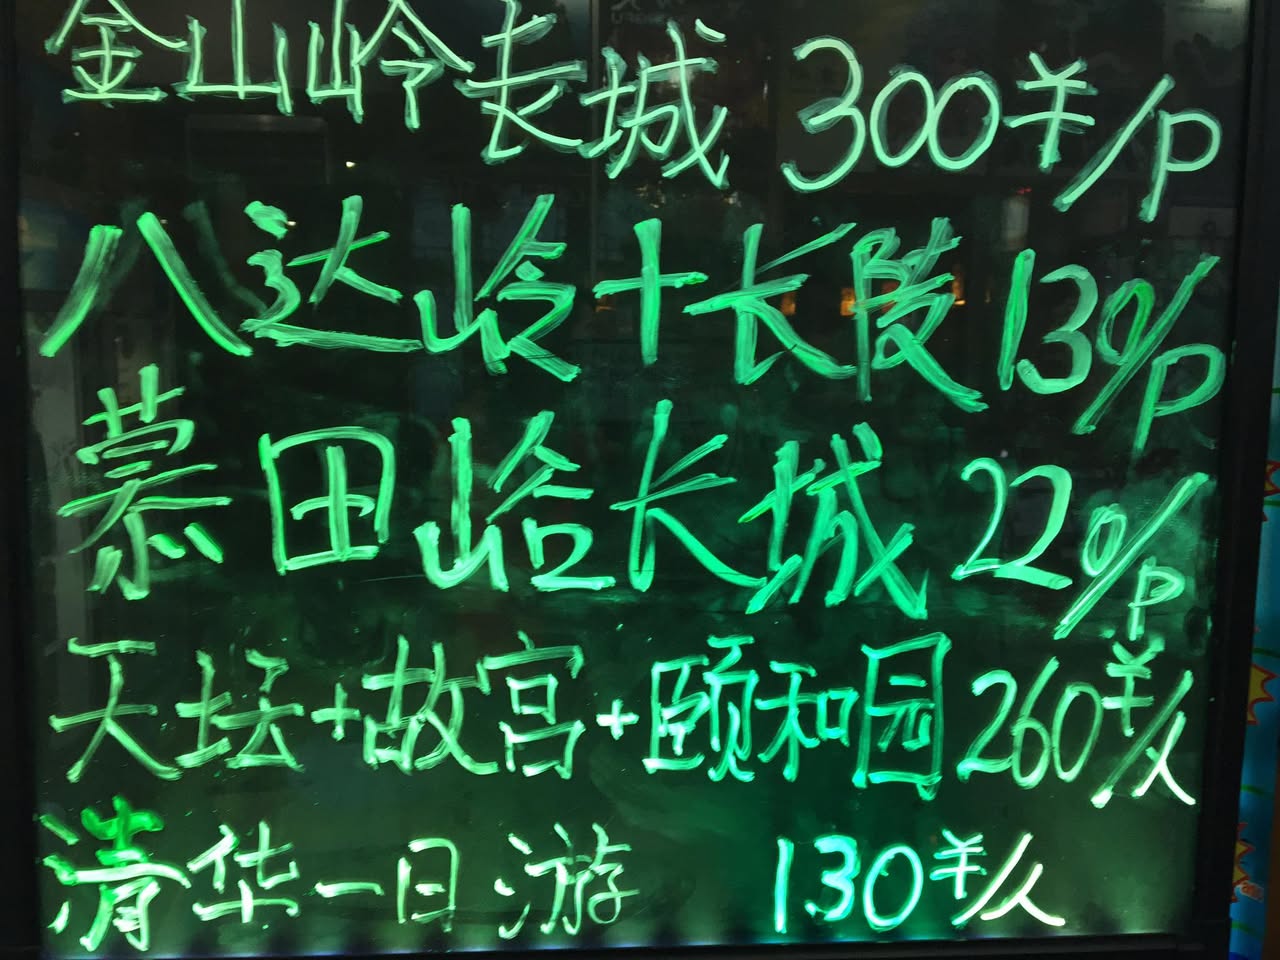 金山岭长城 300¥/P
八达岭+长陵 130/P
慕田峪长城 220/P
天坛+故宫+颐和园 260¥/人
清华一日游 130¥/人